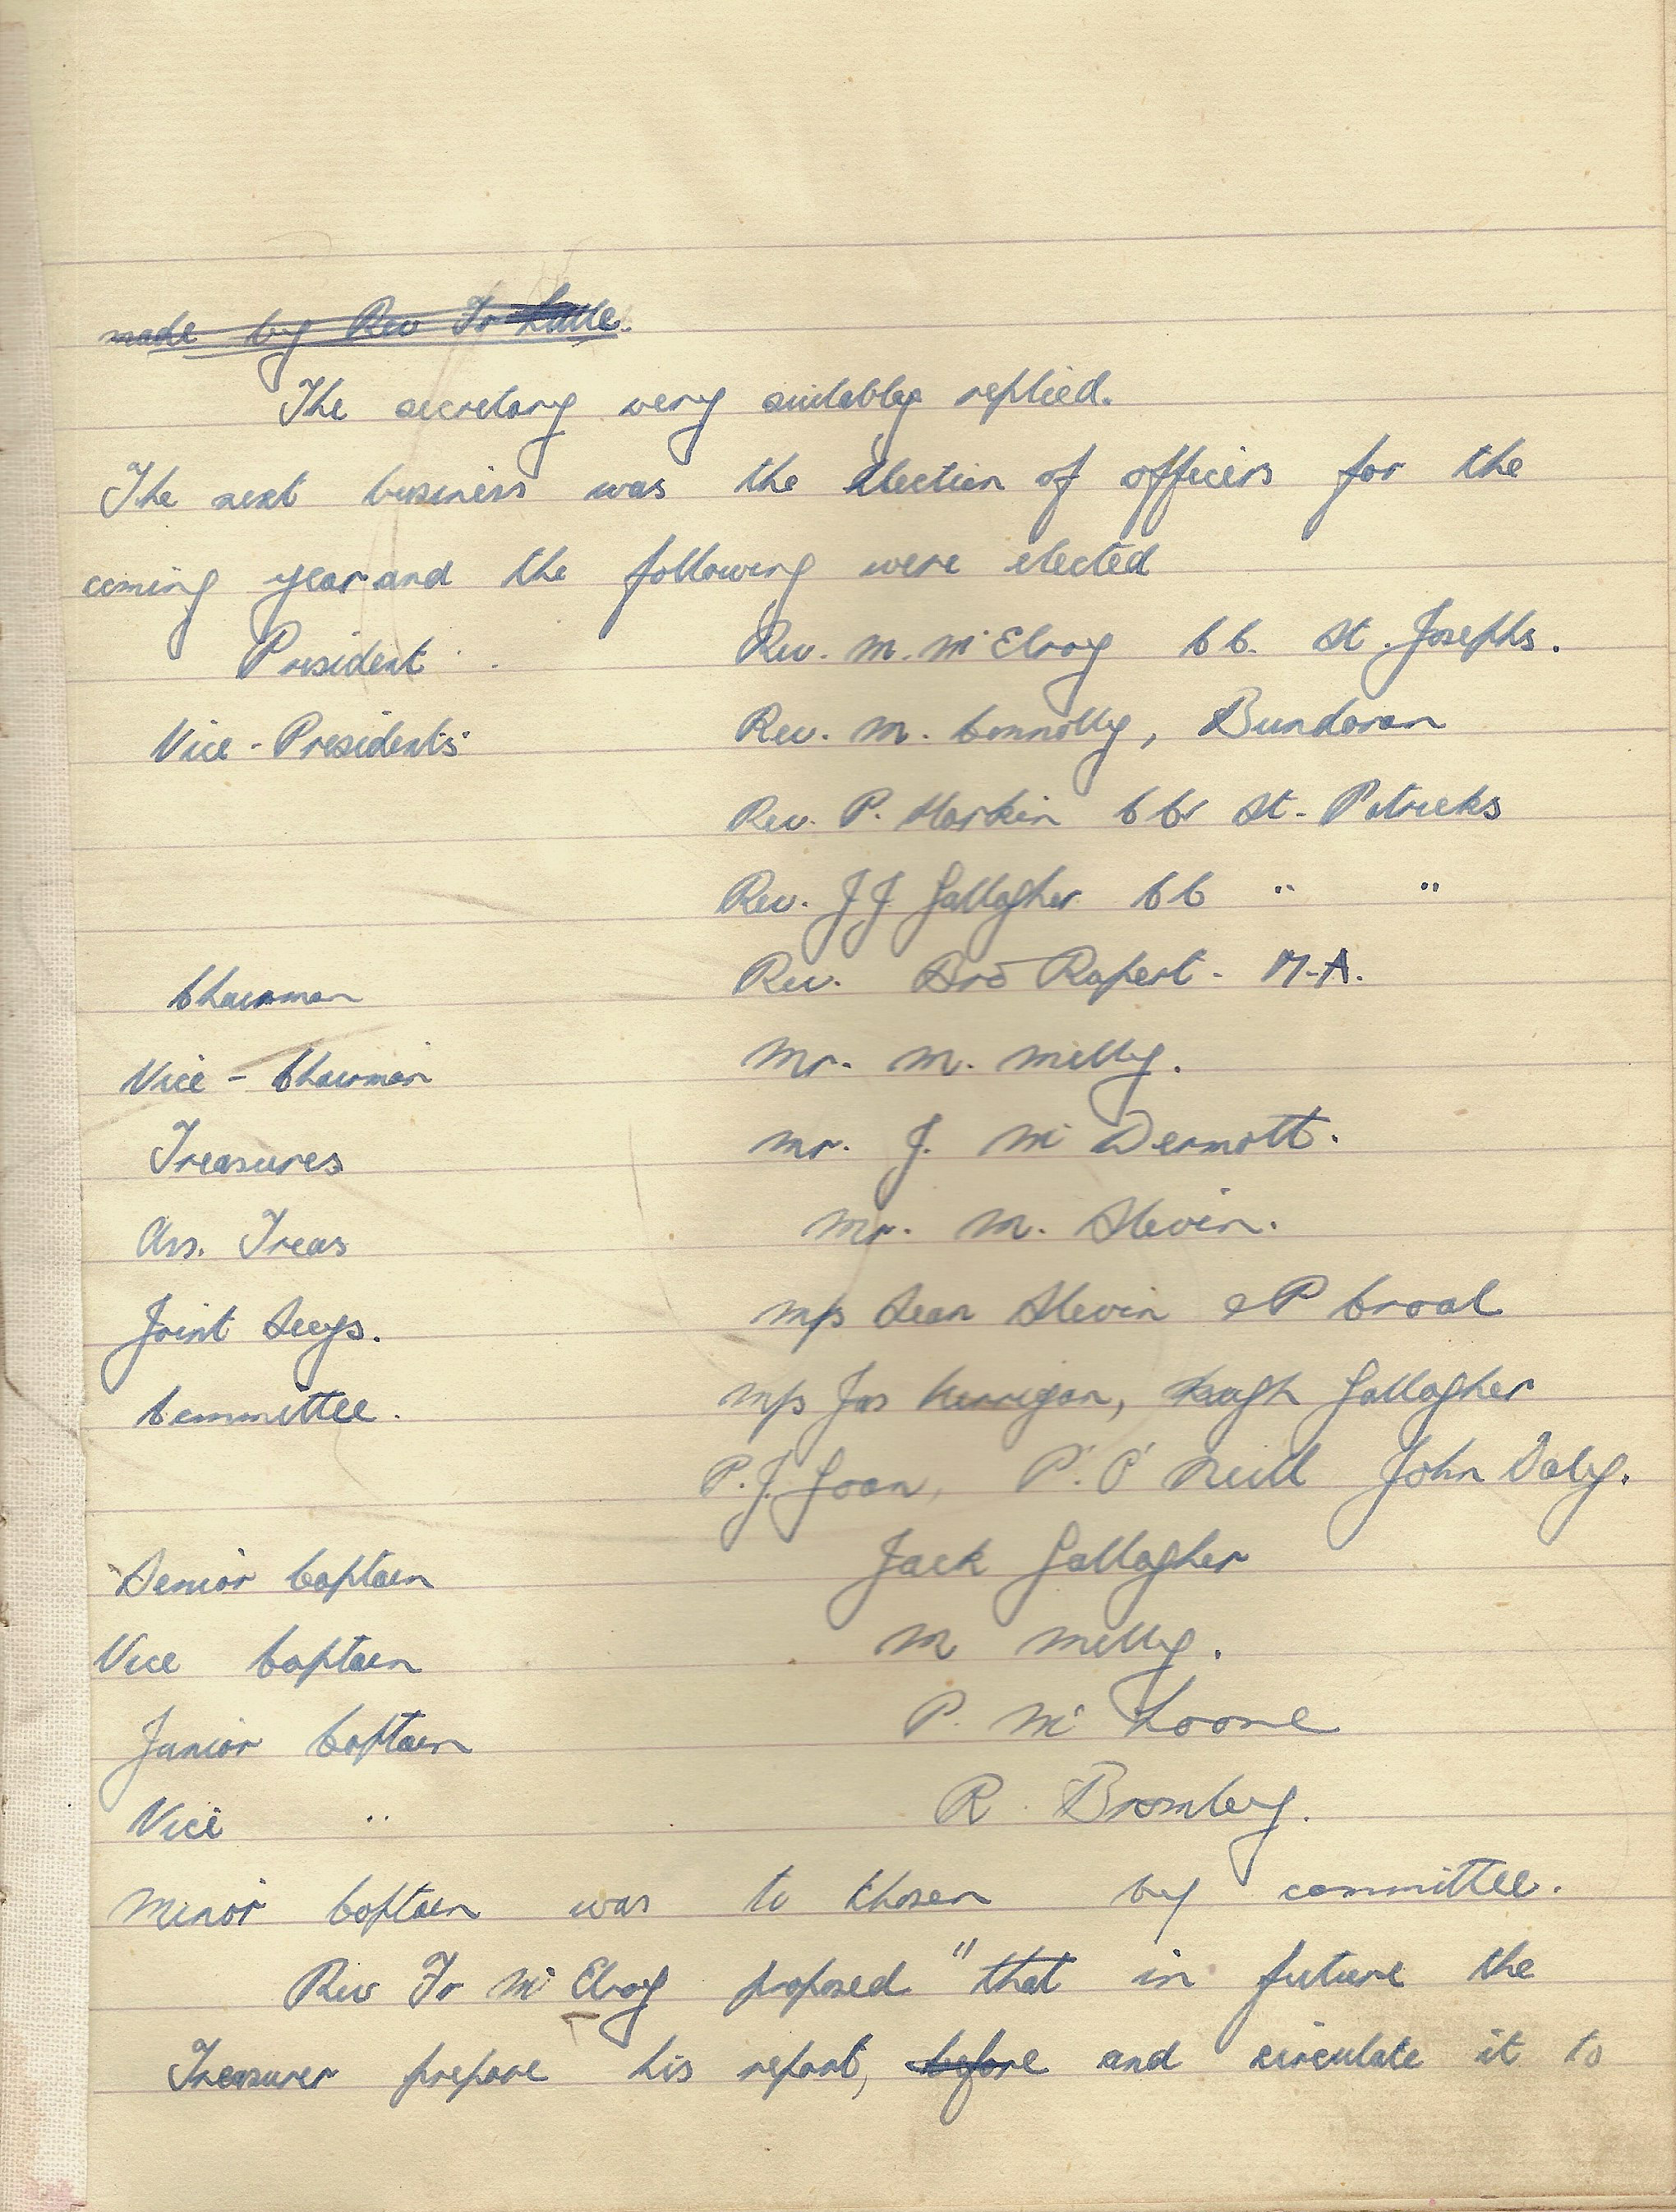 made by Rev Fr
The secretary very suitably replied.
The next business was the election of officers for the
coming year and the following were elected
President Rev. M. McElroy CC. St. Josephs.
Vice-Presidents Rev. M. Connolly, Bundoran
Rev. P. Harkin CC St. Patricks
Rev. JJ Gallagher CC " "
Chairman Rev. Bro Rupert. M.A.
Vice-Chairman Mr. M. Melly.
Treasures Mr. J. Mc Dermott.
Ass. Treas Mr. M. Slevin.
Joint Secys. M/s Sean Slevin & P Croal
Committee. M/s Jas Kerrigan, Hugh Gallagher
P.J. Goan, P. O' Neill John Daly.
Senior Captain Jack Gallagher
Vice Captain M Melly.
Junior Captain P. Mc Loone
Vice " R. Bromley.
Minor Captain was to chosen by committee.
Rev Fr McElroy proposed "that in future the
Treasurer prepare his report, before and circulate it to